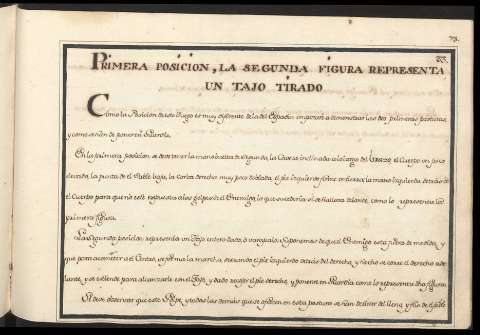 73.
23.
PRIMERA POSICION, LA SEGUNDA FIGURA REPRESENTA
UN TAJO TIRADO
Como la Posicion de este Juego es muy diferente de la del Espadin empezare a demonstrar las dos primeras posturas,
y como se han de poner en Guardia.
En la primera posicion se debe tener la mano buelta de segunda, la Cabeza inclinada a lo largo del brazo, el Cuerpo un poco
elevado, la punta de el Sable baxa, la Corba derecha muy poco doblada, el pie izquierdo firme en tierra, la mano izquierda detras de
el Cuerpo para que no esté expuesta a los golpes de el Enemigo, lo que sucederia si se hallara delante, como lo representa la
primera figura.
La Segunda posicion representa un Tajo entero dado, ò tirado; Supponemos de que el Enemigo está fuera de medida, y
que para acometer a el Contrario, se forma la marcha, trayendo el pie izquierdo detras del derecho, y hecho se corre el derecho ade-
lante, y se extiende para alcanzarle con el Tajo, y dado recoger el pie derecho, y ponerse en Guardia como lo representa dha figura.
Se debe observar que este Golpe, y todos los demas que se ofrecen en esta postura se han de tirar del lleno, y filo de el Sable